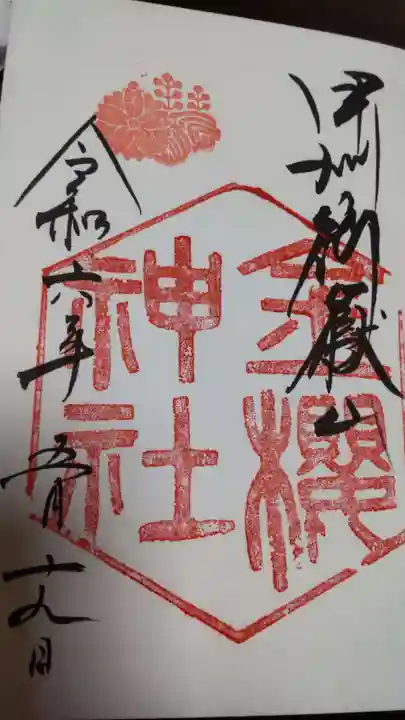 甲州御嶽山
金櫻
神社
令和六年
五月
十九日